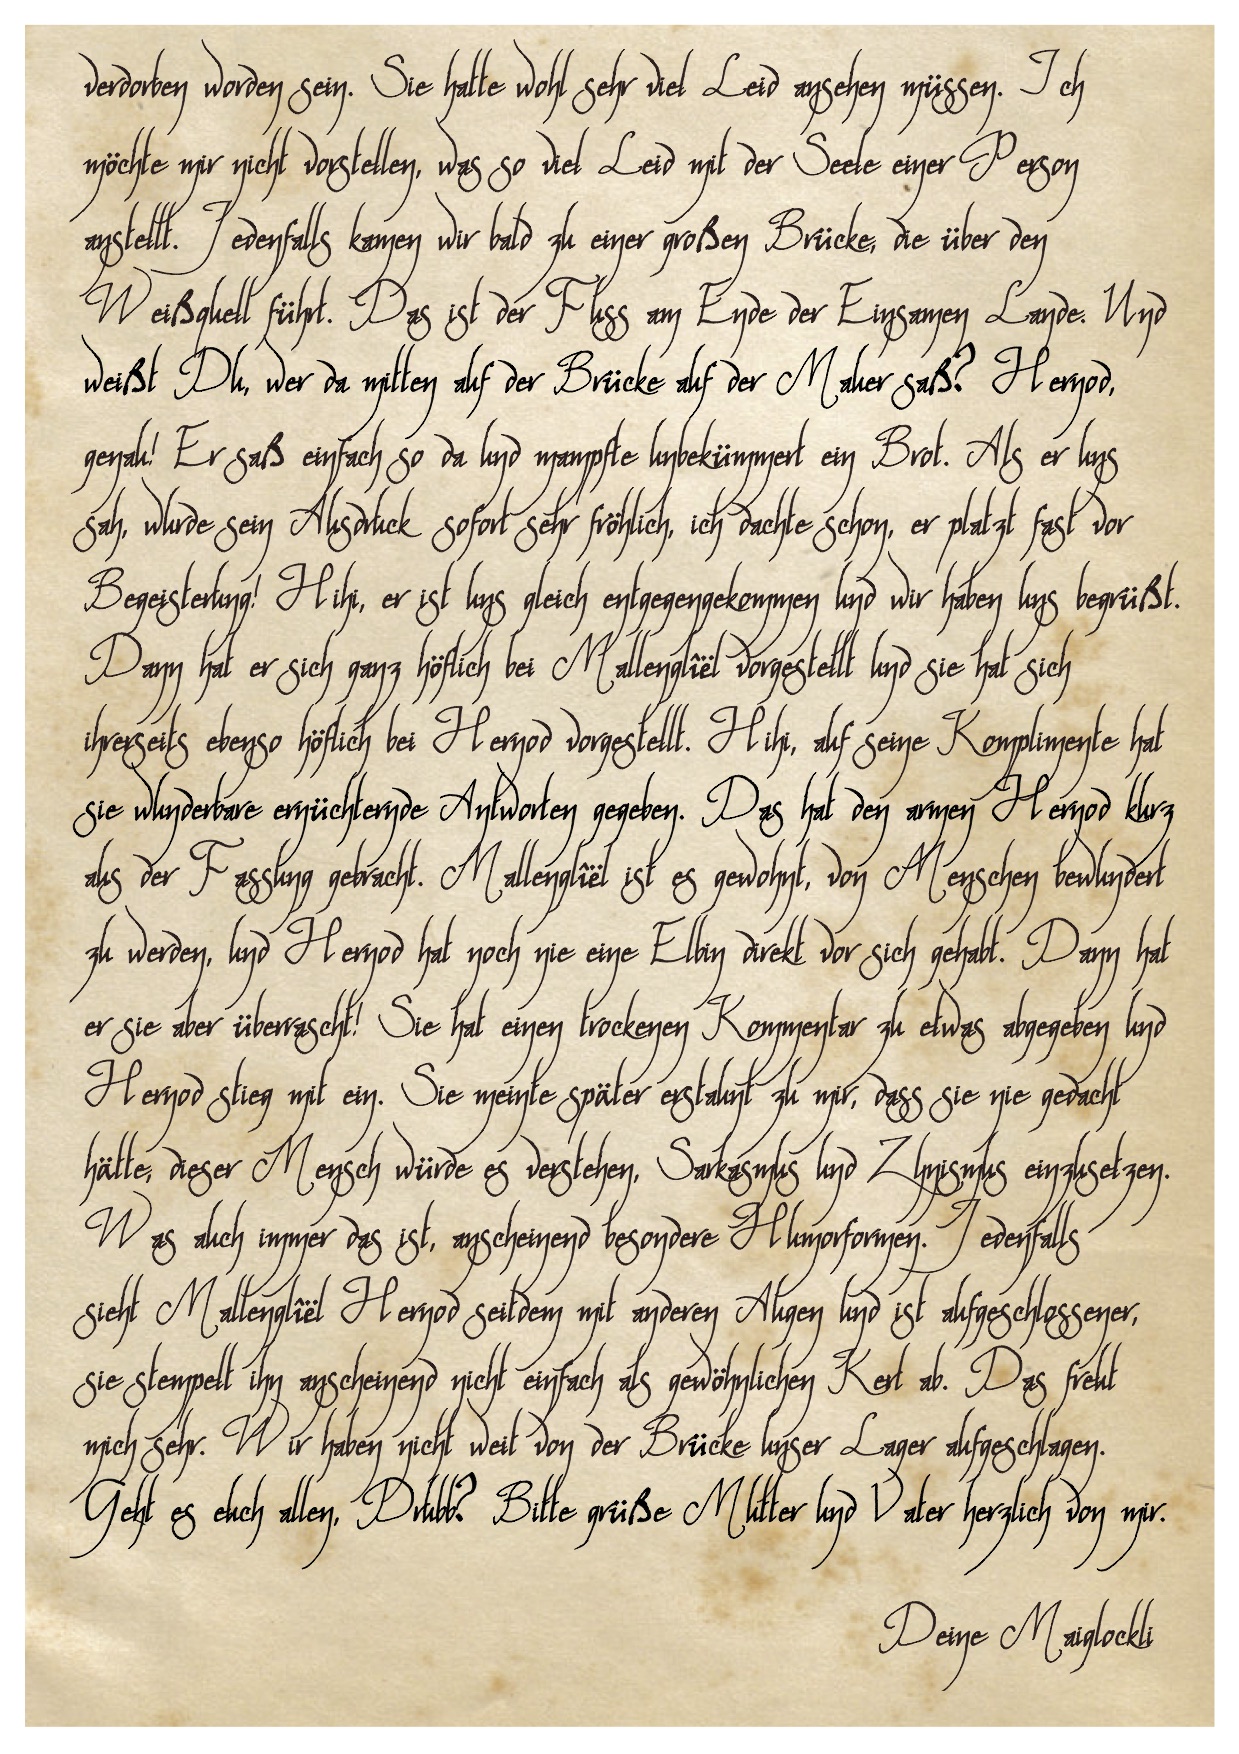 verdorben worden sein. Sie hatte wohl sehr viel Leid ansehen müssen. Ich
möchte mir nicht vorstellen, was so viel Leid mit der Seele einer Person
anstellt. Jedenfalls kamen wir bald zu einer großen Brücke, die über den
Weißquell führt. Das ist der Fluss am Ende der Einsamen Lande. Und
weißt Du, wer da mitten auf der Brücke auf der Mauer saß? Hernod,
genau! Er saß einfach so da und mampfte unbekümmert ein Brot. Als er uns
sah, wurde sein Ausdruck sofort sehr fröhlich, ich dachte schon, er platzt fast vor
Begeisterung! Hihi, er ist uns gleich entgegengekommen und wir haben uns begrüßt.
Dann hat er sich ganz höflich bei Mallenglîël vorgestellt und sie hat sich
ihrerseits ebenso höflich bei Hernod vorgestellt. Hihi, auf seine Komplimente hat
sie wunderbare ernüchternde Antworten gegeben. Das hat den armen Hernod kurz
aus der Fassung gebracht. Mallenglîël ist es gewohnt, von Menschen bewundert
zu werden, und Hernod hat noch nie eine Elbin direkt vor sich gehabt. Dann hat
er sie aber überrascht! Sie hat einen trockenen Kommentar zu etwas abgegeben und
Hernod stieg mit ein. Sie meinte später erstaunt zu mir, dass sie nie gedacht
hätte, dieser Mensch würde es verstehen, Sarkasmus und Zynismus einzusetzen.
Was auch immer das ist, anscheinend besondere Humorformen. Jedenfalls
sieht Mallenglîël Hernod seitdem mit anderen Augen und ist aufgeschlossener,
sie stempelt ihn anscheinend nicht einfach als gewöhnlichen Kerl ab. Das freut
mich sehr. Wir haben nicht weit von der Brücke unser Lager aufgeschlagen.
Geht es euch allen, Drubb? Bitte grüße Mutter und Vater herzlich von mir.
Deine Maiglockli